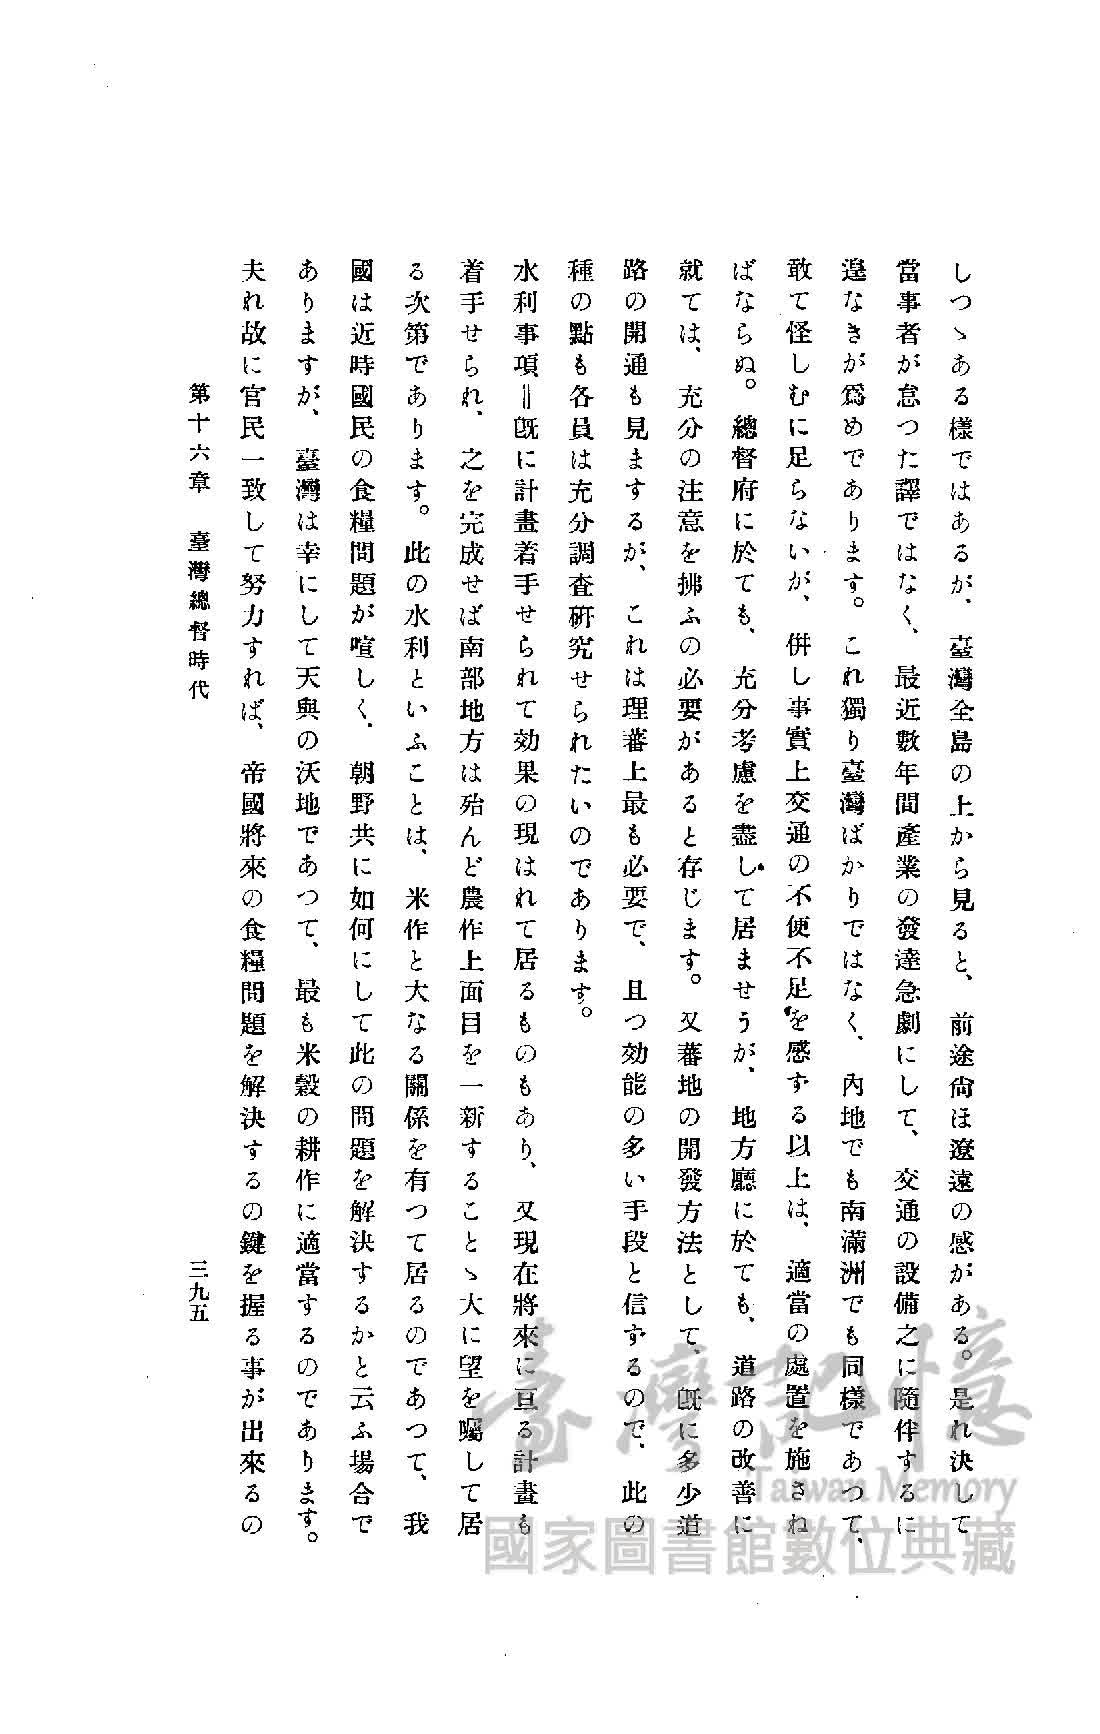 しつゝある樣ではあるが、臺灣全島の上から見ると、前途尙ほ遼遠の感がある。是れ決して
當事者が怠つた譯ではなく、最近數年間產業の發達急劇にして、交通の設備之に隨伴するに
遑なきが爲めであります。これ獨り臺灣ばかりではなく、內地でも南滿洲でも同樣であつて、
敢て怪しむに足らないが、併し事實上交通の不便不足を感ずる以上は、適當の處置を施さね
ばならぬ。總督府に於ても、充分考慮を盡して居ませうが、地方廳に於ても、道路の改善に
就ては、充分の注意を拂ふの必要があると存じます。又蕃地の開發方法として、旣に多少道
路の開通も見まするが、これは理蕃上最も必要で、且つ効能の多い手段と信ずるので、此の
種の點も各員は充分調査硏究せられたいのであります。
水利事項‖旣に計畫着手せられて効果の現はれて居るものもあり、又現在將來に亘る計畫も
着手せられ、之を完成せば南部地方は殆んど農作上面目を一新することゝ大に望を囑して居
る次第であります。此の水利といふことは、米作と大なる關係を有つて居るのであつて、我
國は近時國民の食糧問題が喧しく、朝野共に如何にして此の問題を解決するかと云ふ場合で
ありますが、臺灣は幸にして天與の沃地であつて、最も米穀の耕作に適當するのであります。
夫れ故に官民一致して努力すれば、帝國將來の食糧問題を解決するの鍵を握る事が出來るの
第十六章　臺灣總督時代
三九五
臺灣記憶
Taiwan Memory
國家圖書館數位典藏